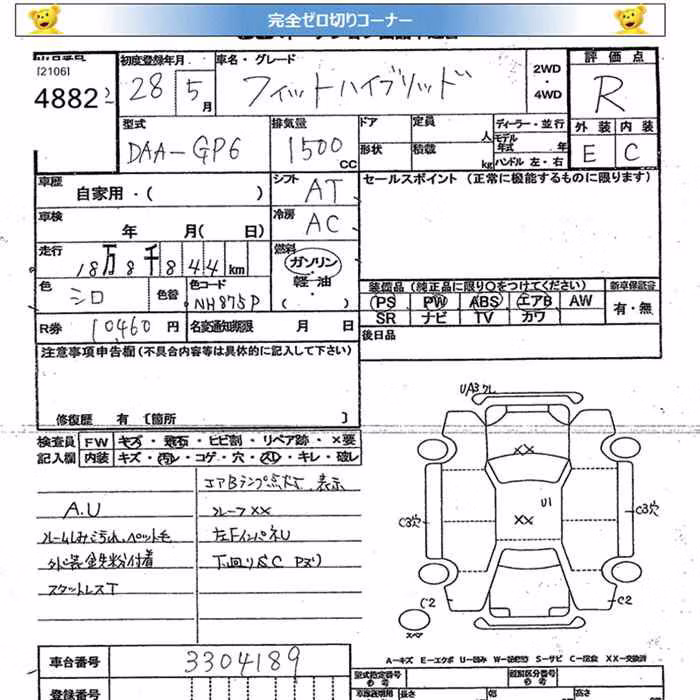 完全ゼロ切りコーナー
[2106] 初度登録年月 車名・グレード 2WD ・ 4WD 評価点
4882 28 5月 フィットハイブリッド R
型式 排気量 ドア 定員 人 ディーラー・並行 外装 内装
DAA-GP6 1500 CC 形状 積載 kg モデル年式 年 ハンドル 左・右 E C
車歴 自家用・( ) シフト AT セールスポイント (正常に機能するものに限ります)
車検 年 月( 日) 冷房 AC
走行 18万8千844km 燃料 ガソリン・軽油・( )
色 シロ 色替 色コード NH875P 装備品 (純正品に限り○をつけてください) 新車保証書
PS PW ABS エアB AW 有・無
SR ナビ TV カワ
R券 10460円 名変通知期限 月 日 後日品
注意事項申告欄 (不具合内容等は具体的に記入して下さい)
修復歴 有 〔箇所 〕
検査員 FW キズ・飛石・ヒビ割・リペア跡・×要
記入欄 内装 キズ・汚レ・コゲ・穴・スレ・キレ・破レ
エアBランプ点灯 表示
A.U ルーフXX
ルームしみ汚れ、ペット毛 左FインパネU
外装鉄粉付着 下回りS.C Pヌリ
スタットレスT
U/A3クレ
XX
U1
XX
C3穴 C3穴
C2 C2
スペア
車台番号 3304189
A-キズ E-エクボ U-凹み S-サビ C-腐食 XX-交換済
登録番号
型式指定番号 類別区分番号
長さ 幅 高さ